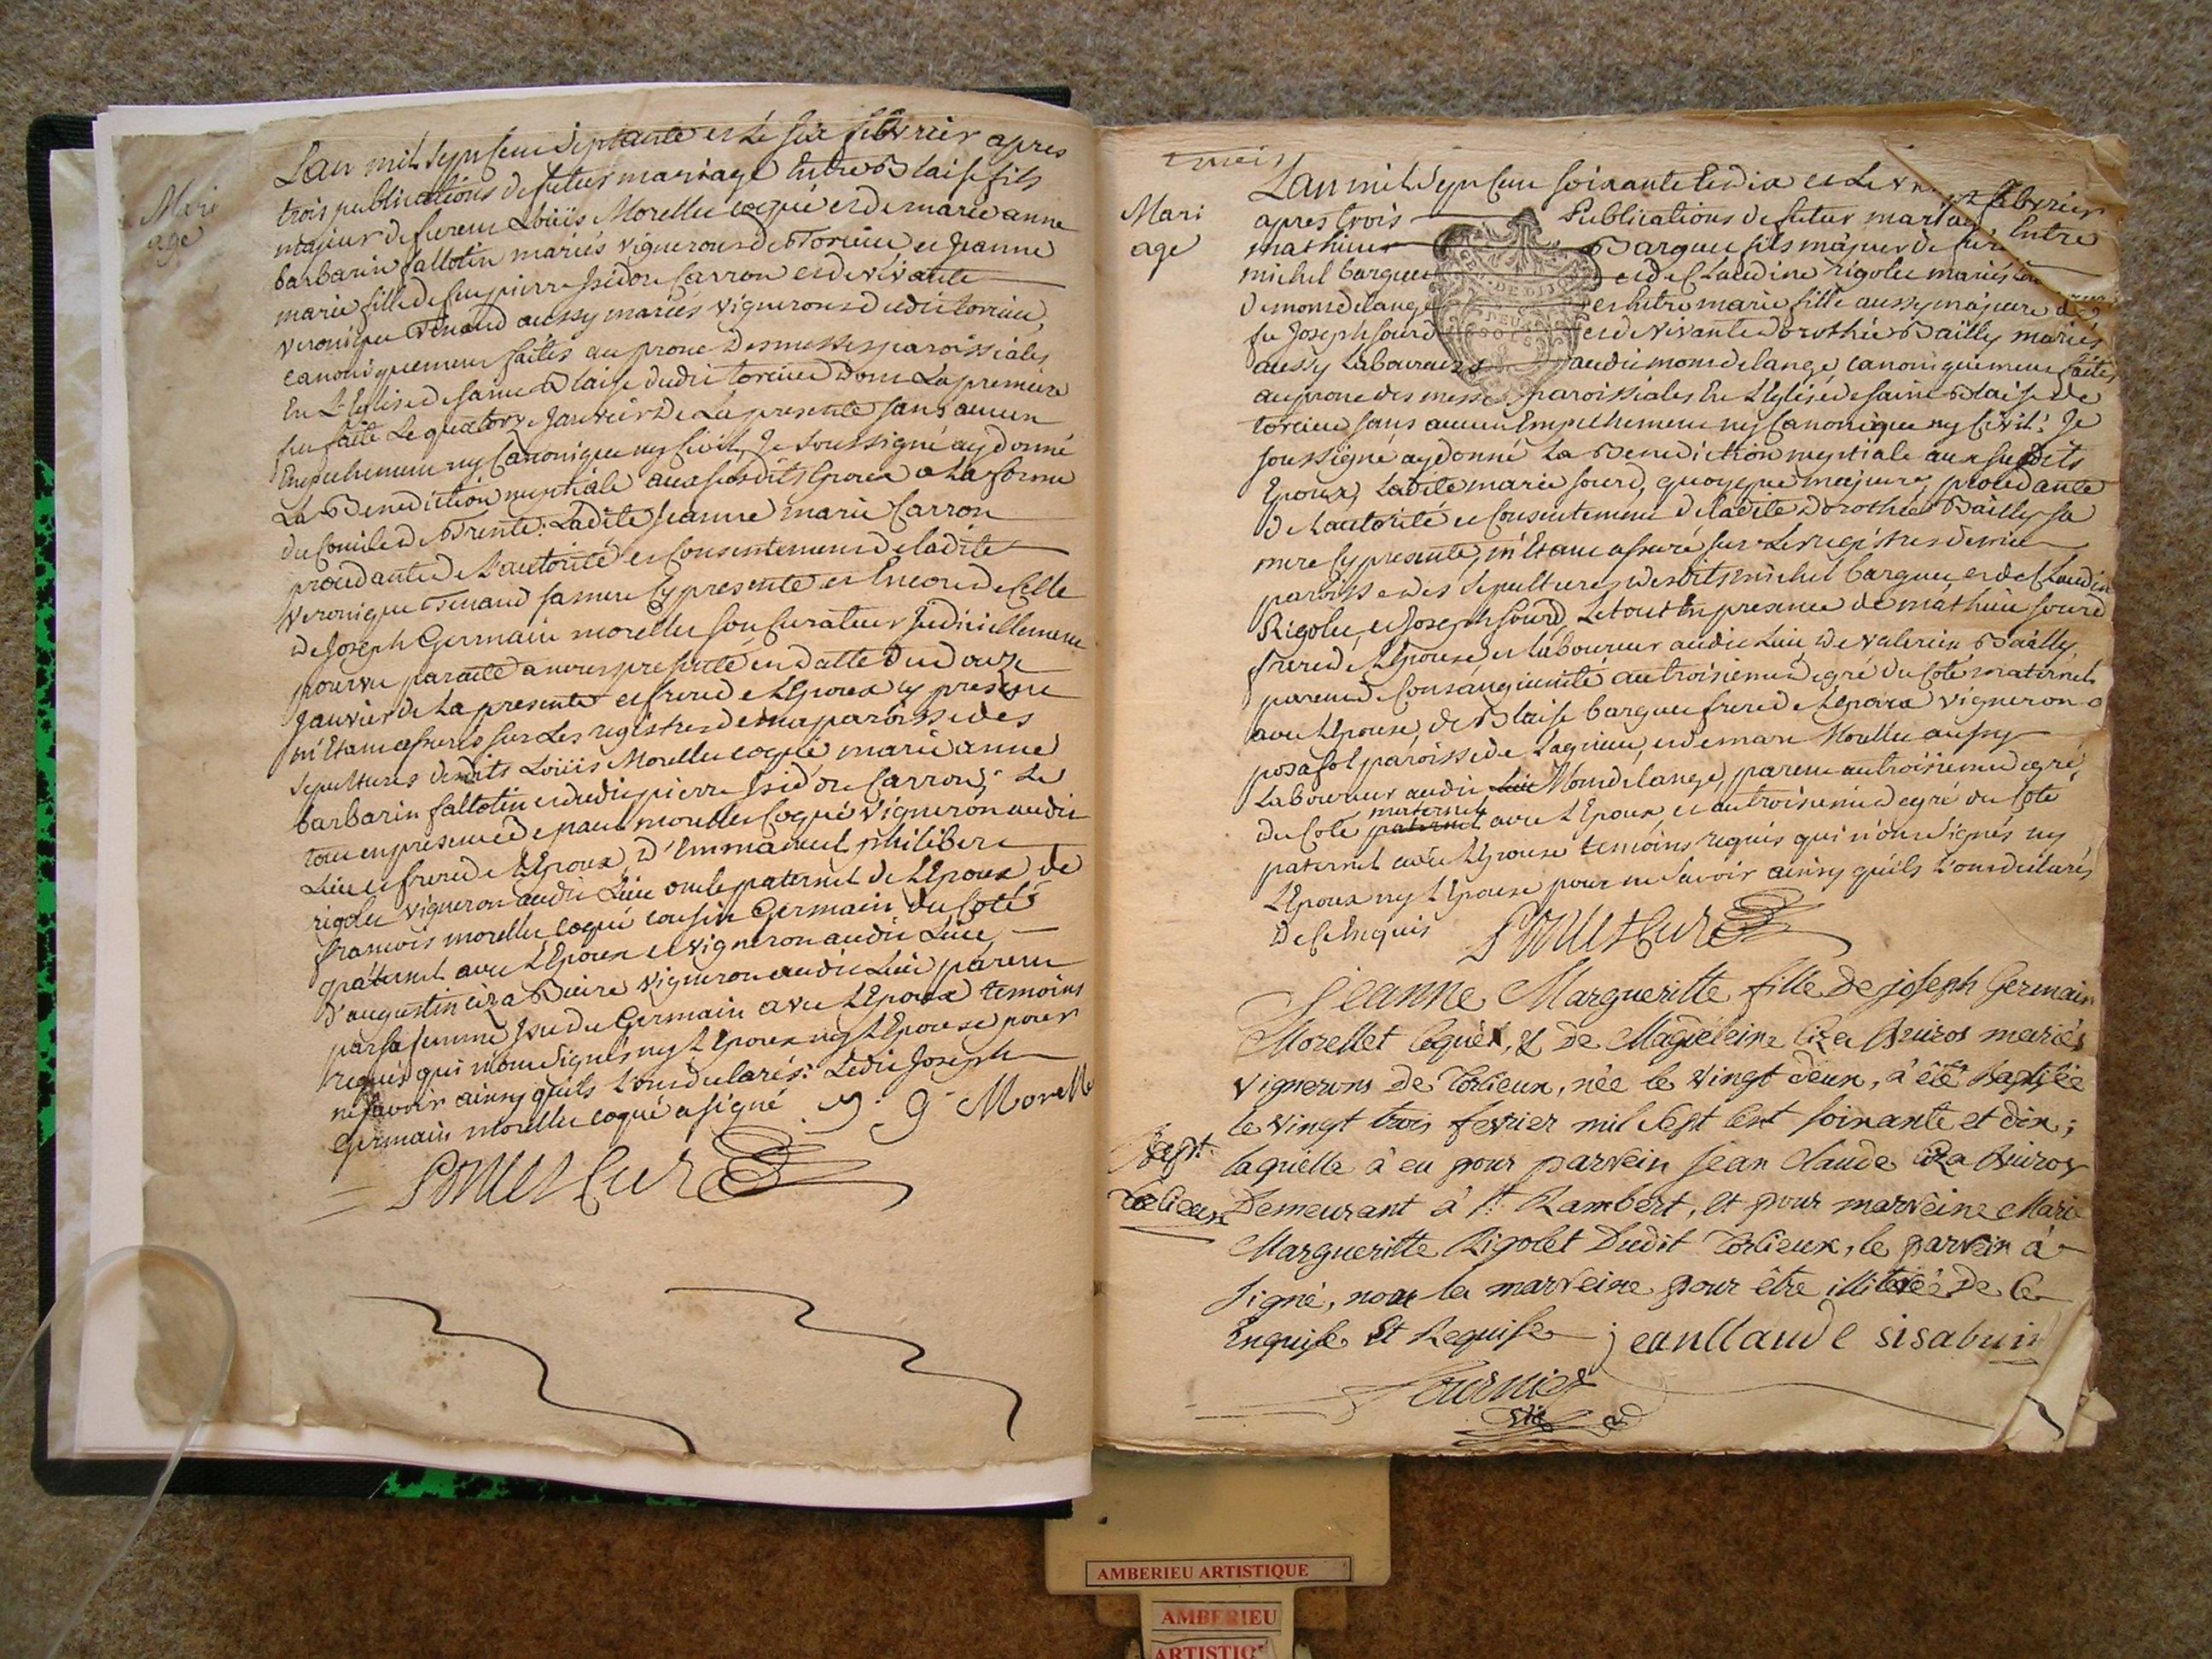 Mari
age
L'an mil sept cent septante et le six febvrier apres
trois publications de futur mariage Entre Blaise fils
majeur de furent Loüis Morellet coqué et de marie anne
barbarin fallotin mariés vignerons de Torcieu et Jeanne
marie fille de feu pierre Isidore Carron et de vivante
veronique Tenand aussy mariés vignerons dudit torcieu,
canoniquement faites au prone des messes paroissiales
En L'Eglise de saint Blaise dudit torcieu Dont La premiere
fut faite Le quatorze Janvier De La presente sans aucun
Empechement ny Canonique ny Civil, Je soussigné ay donné
La Benediction nuptiale aux susdits Epoux a La forme
du Concile de Trente: Ladite Jeanne marie Carron
procedante de L'autorité et Consentement de ladite
Veronique Tenand sa mere cy presente et Encore de Celle
de Joseph Germain morellet son Curateur Judiciellement
pourvu par acte a nous presenté en datte du douze
Janvier de La presente et frere de L'Epoux cy present
m'Etant assuré sur Les registres de ma paroisse des
sepultures desdits Loüis Morellet coqué marie anne
barbarin fallotin et dudit pierre Isidore Carron; Le
tout en presence de paul morellet Coqué vigneron audit
Lieu et frere de L'Epoux, D'Emmanuel philibert
rigolet vigneron audit Lieu oncle paternel de L'Epoux de
francois morellet coqué cousin Germain du Coté
paternel avec L'Epoux et vigneron audit Lieu,
D'augustin ciza Buire vigneron audit Lieu parent
par sa femme Issu du Germain avec L'Epoux temoins
requis qui n'ont signés ny L'Epoux ny L'Epouse pour
ne savoir ainsy qu'ils L'ont declarés: Ledit Joseph
Germain morellet coqué a signé. J. g. Morelle
Curé
Mari
age
L'an mil sept cent soixante et dix et Le febvrier
apres trois Publications de futur mariage Entre
mathieu Barquet fils majeur de
michel barquet et de Claudine rigolet mariés
de montdelange et Entre marie fille aussy majeure de
fu Joseph sourd et de vivante dorothée Bailly mariés
aussy Laboureurs audit montdelange canoniquement faites
au prone des messes paroissiales En L'Eglise de saint Blaise de
torcieu sans aucun Empechement ny Canonique ny Civil: Je
soussigné ay donné La Benediction nuptiale aux susdits
Epoux, Ladite marie sourd, quoyque majeure, procedante
de L'autorité et Consentement de ladite Dorothée Bailly sa
mere cy presente, m'Etant assuré sur Les registres de ma
paroisse des sepultures desdits michel barquet et de Claudine
Rigolet, et Joseph sourd, Le tout En presence de mathieu sourd
frere de L'Epouse et laboureur audit Lieu, de valerien Bailly,
parent de Consanguinité au troisieme degré du Coté maternel
avec L'Epouse, de Blaise barquet frere de L'Epoux vigneron a
posafol paroisse de Lagnieu, et de marc Morellet aussy
Laboureur audit Lieu Montdelange, parent au troisieme degré
du Coté paternel maternel avec L'Epoux, et au troisieme degré du Coté
paternel avec L'Epouse temoins requis qui n'ont signés ny
L'Epoux ny L'Epouse pour ne savoir ainsy qu'ils L'ont declarés
De ce Enquis Curé
Jeanne Margueritte fille de joseph Germain
Morellet Coquét, & de Magdeleine Ciza Buiros mariés
vignerons de Torcieux, née le vingt deux, à été baptisée
le vingt trois fevrier mil sept cent soixante et dix;
Bapt.
Torcieux
laquelle à eu pour parrein jean Claude ciza Buiros
Demeurant à St. Rambert, et pour marreine Marie
Margueritte Rigolet Dudit Torcieux, le parrein à
signé, non la marreine pour être illiterée De ce
Enquise Et Requise jeanClaude sisabuir
Fournier
vic
DE DIJ
DEUX
SOLS
AMBERIEU ARTISTIQUE
AMBERIEU
ARTISTIQ